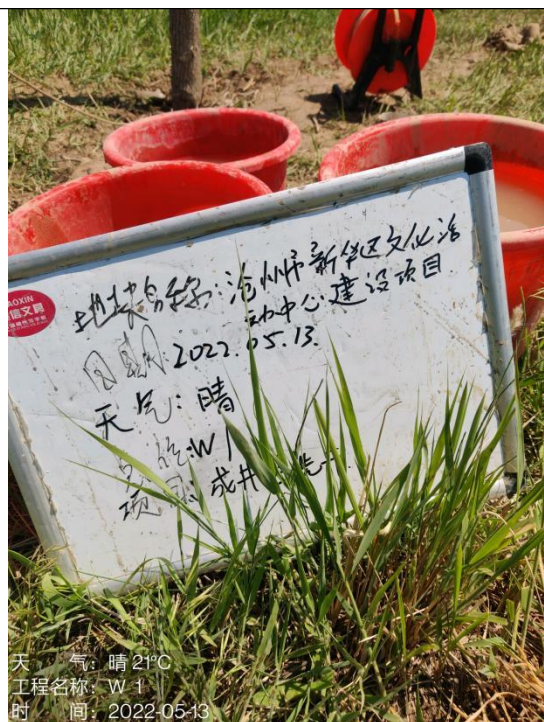 AOXIN
信文具
地块名称:沧州市新华区文化活
动中心建设项目
日期:2022.05.13.
天气:晴
点位:W1
项目:成井洗
天 气:晴 21℃
工程名称:W 1
时 间:2022-05-13